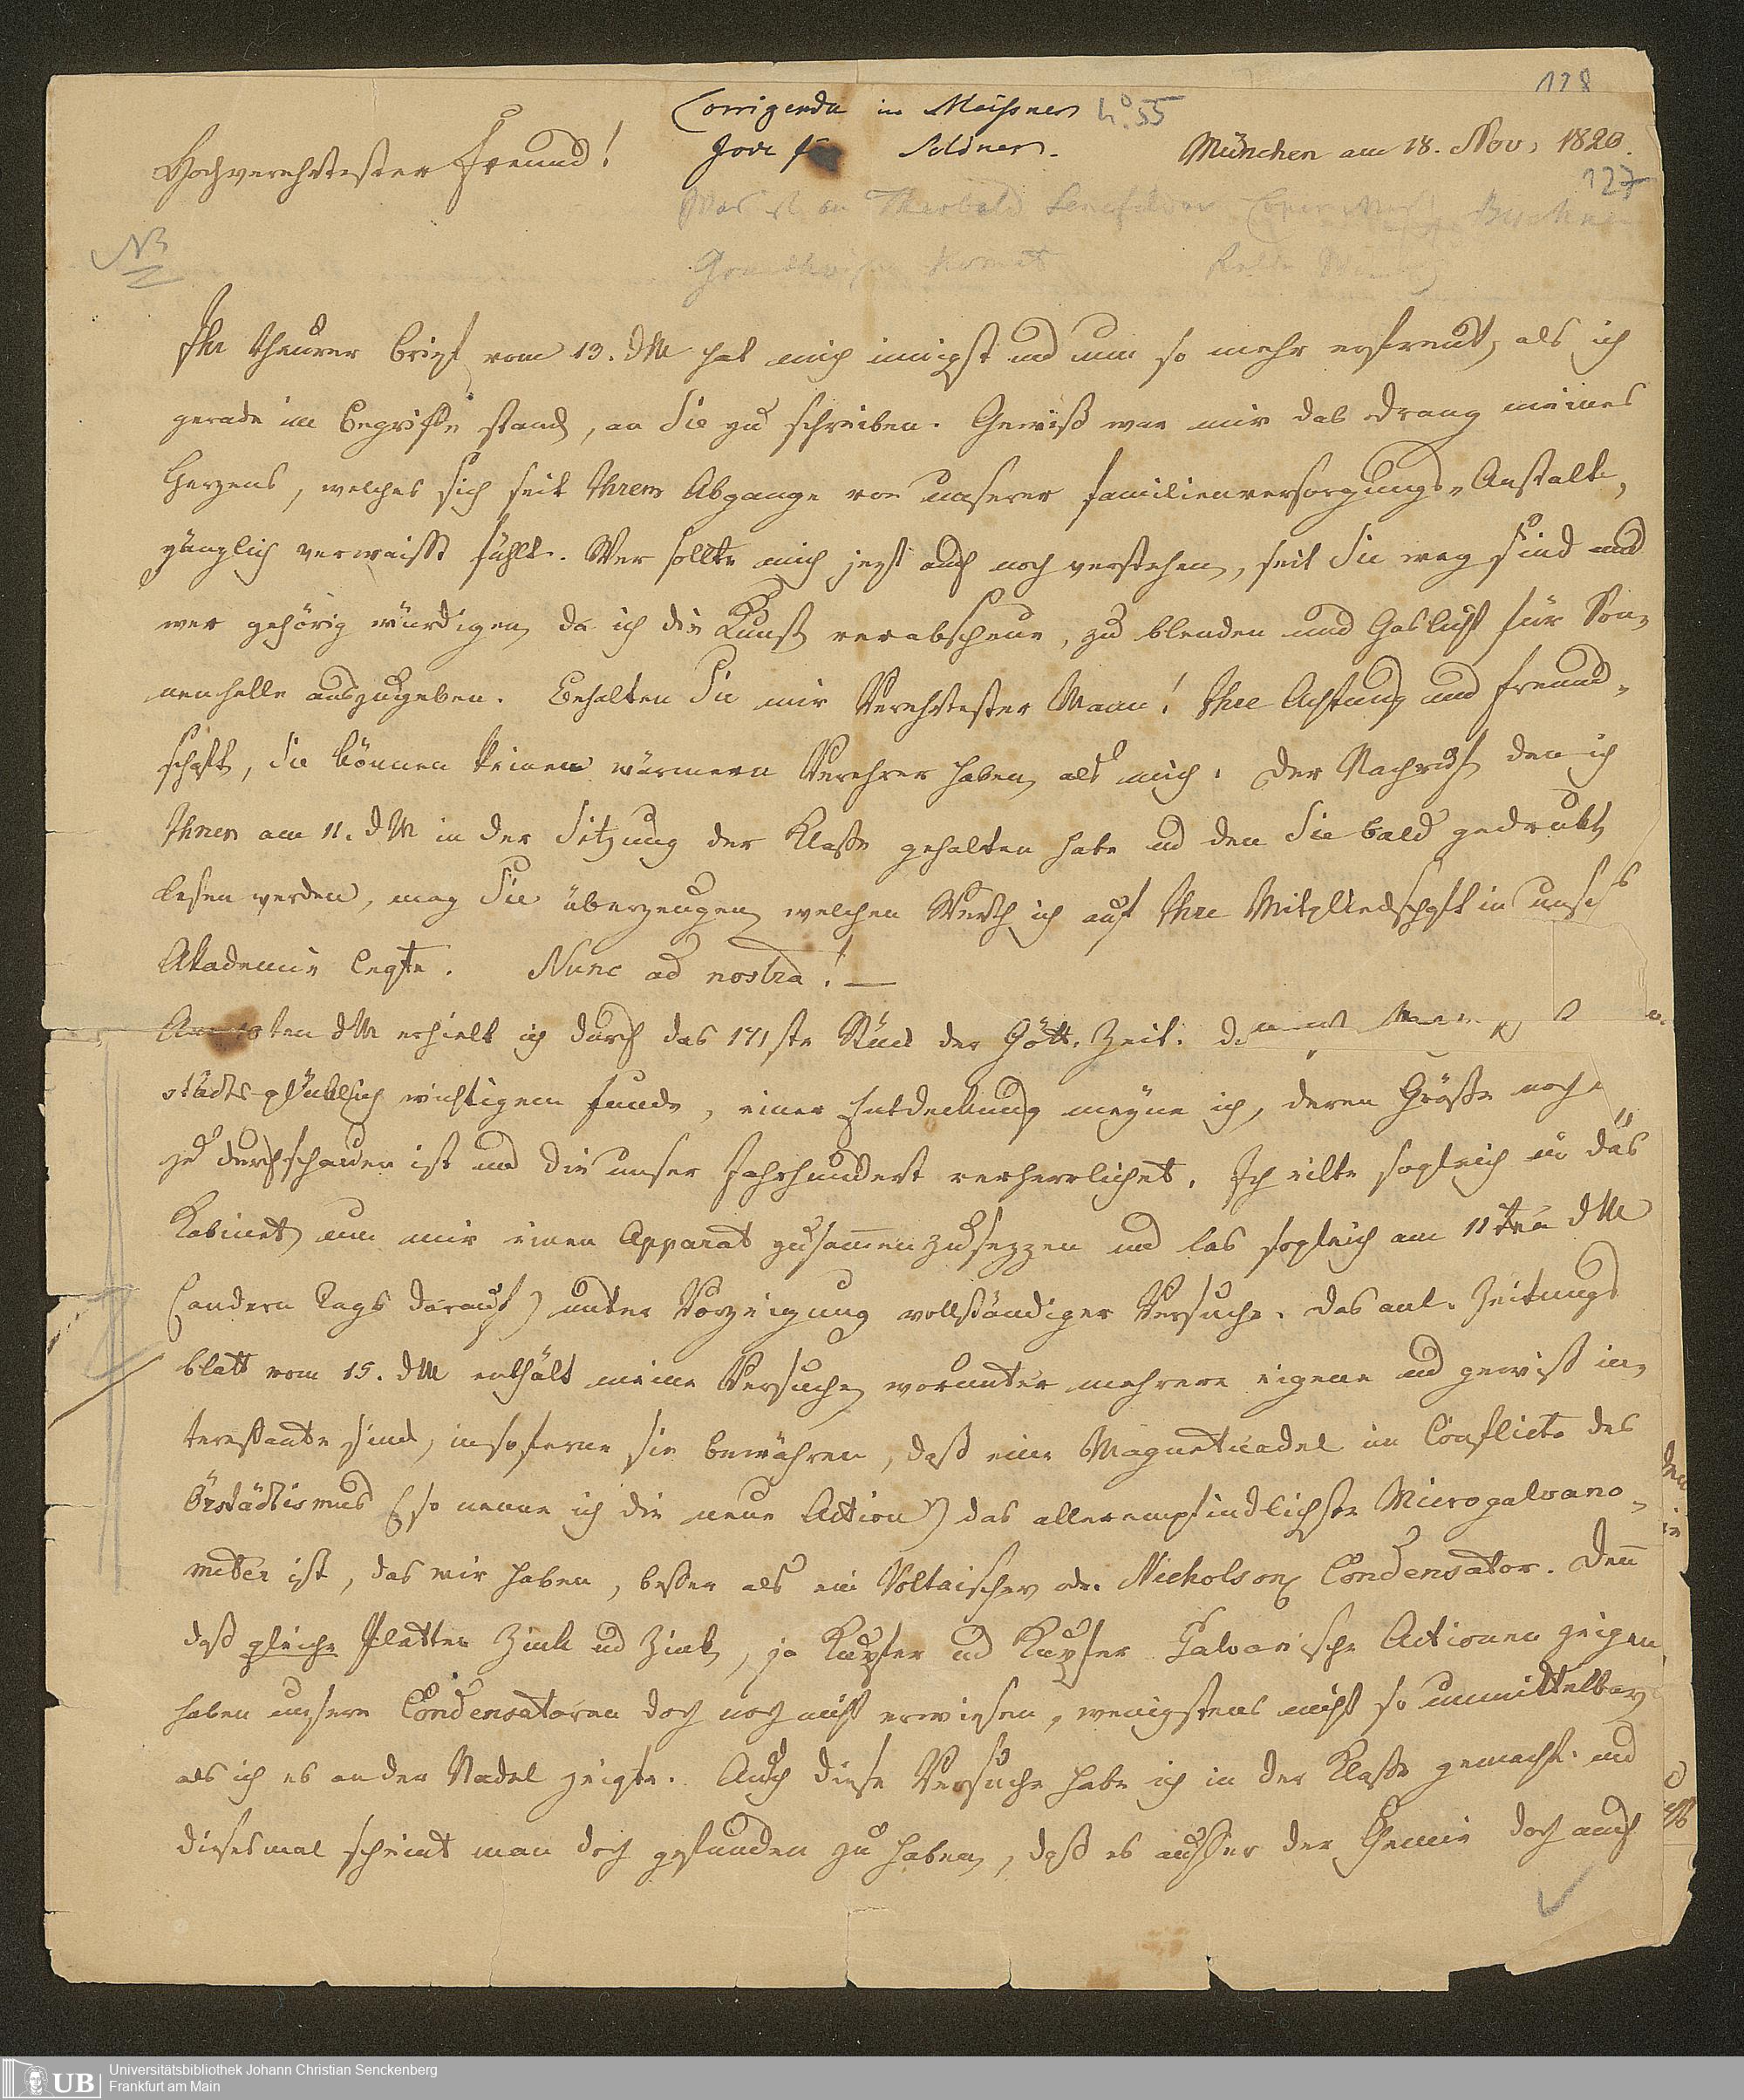 118
Corrigenda in Meißner
No 55
Jove für Soldner.
München am 18. Nov. 1820.
127
Hochverehrtester Freund!
NB
Ihr theurer Brief vom 13. dM hat mich innigst und um so mehr erfreut, als ich
gerade im Begriffe stand, an Sie zu schreiben. Gewiß war mir das Drang meines
Herzens, welches sich seit Ihrem Abgange von unserer Familienversorgungs-Anstalt,
gänzlich verwaißt fühlt. Wer sollte mich jezt auch noch verstehen, seit Sie weg sind und
wer gehörig würdigen, da ich die Kunst verabscheue, zu blenden und Gaslicht für Son-
nenhelle auszugeben. Behalten Sie mir Verehrtester Mann! Ihre Achtung und Freund-
schaft, Sie können keinen wärmern Verehrer haben, als mich. Der Nachruf, den ich
Ihnen am 11. dM in der Sitzung der Klasse gehalten habe und den Sie bald gedrukt
lesen werden, mag Sie überzeugen, welchen Werth ich auf Ihre Mitgliedschaft in
Akademie legte. Nunc ad nostra! —
Am 10ten dM erhielt ich durch das 171ste Stück der Gött. Zeit.
städts glücklich wichtigem Funde, einer Entdeckung meyne ich, deren Größe noch
zu durchschauen ist und die unser Jahrhundert verherrlichet. Ich eilte sogleich in das
Kabinet, um mir einen Apparat zusammenzusezzen und las sogleich am 11ten dM
(andern Tags darauf) unter Vorzeigung vollständiger Versuche. Das Zeitungs
blatt vom 15. dM enthält meine Versuche, worunter mehrere eigene und gewiß in-
teressante sind, insoferne sie bewähren, daß eine Magnetnadel im Conflicte des
Örstädtismus (so nenne ich die neue Action) das allerempfindlichste Microgalvano-
meter ist, das wir haben, besser als ein Voltaischer od. Nicholsons Condensator. Denn
daß gleiche Platten Zink und Zink, ja Kupfer und Kupfer Galvanische Actionen zeigen,
haben unsere Condensatoren doch noch nicht erwiesen, wenigstens nicht so unmittelbar,
als ich es an der Nadel zeigte. Auch diese Versuche habe ich in der Klasse gemacht und
diesesmal scheint man doch gefunden zu haben, daß es außer der Chemie doch auch
UB
Universitätsbibliothek Johann Christian Senckenberg
Frankfurt am Main